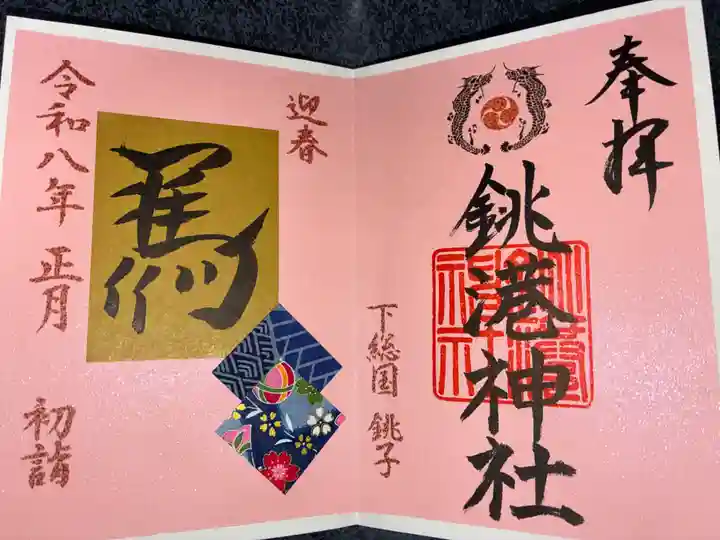 奉拝
銚港神社
下総国 銚子
迎春
馬
令和八年 正月
初詣